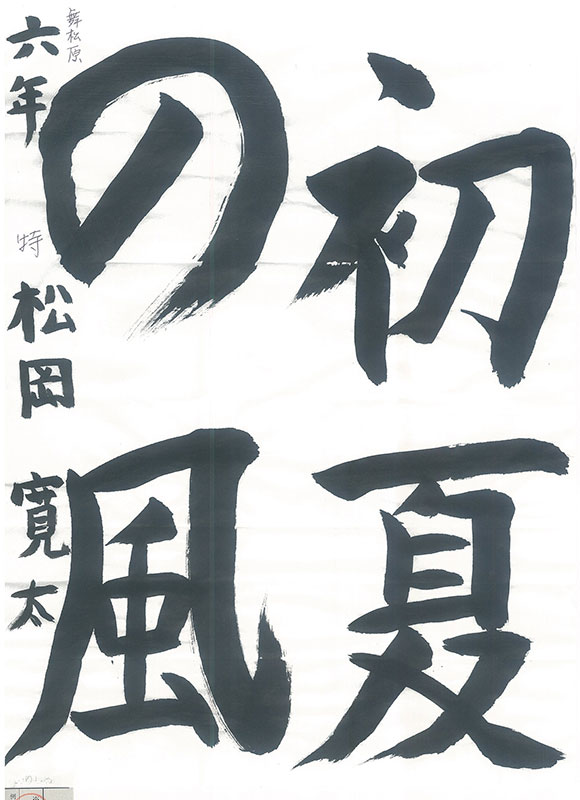 初夏
の風
舞松原
六年 特 松岡 寛太